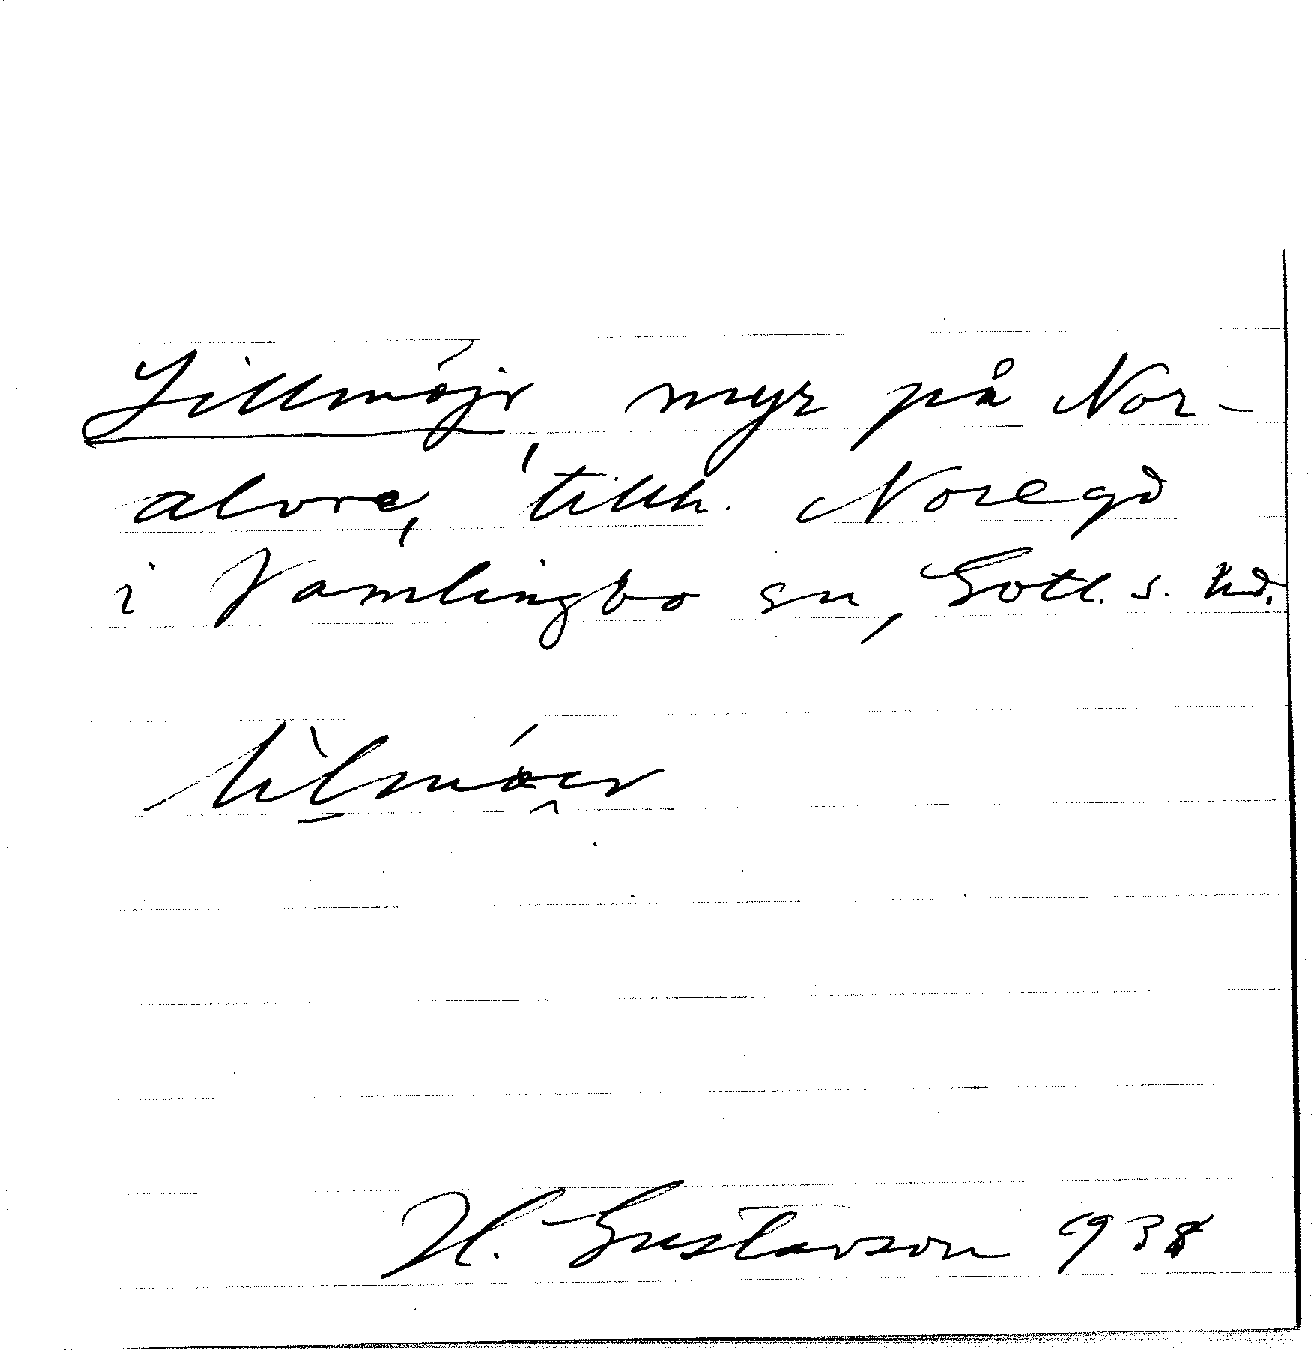 Lillmøjr, myr på Nor-
alvre, tillh. Noregd
i Vamlingbo sn, Gotl. s. hd.
H. Gustavson 1938